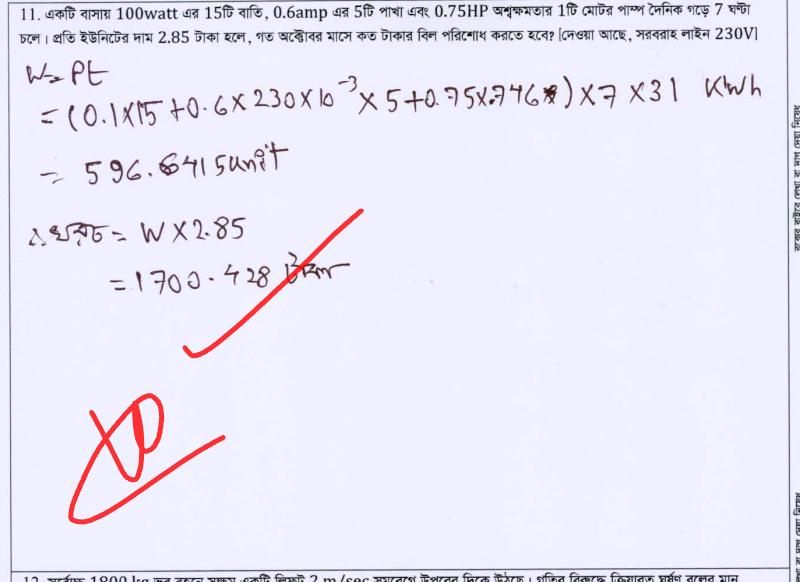 11. একটি বাসায় 100watt এর 15টি বাতি, 0.6amp এর 5টি পাখা এবং 0.75HP অশ্বক্ষমতার 1টি মোটর পাম্প দৈনিক গড়ে 7 ঘন্টা
চলে। প্রতি ইউনিটের দাম 2.85 টাকা হলে, গত অক্টোবর মাসে কত টাকার বিল পরিশোধ করতে হবে? [দেওয়া আছে, সরবরাহ লাইন 230V]
W = Pt
= (0.1×15 + 0.6×230×10⁻³ × 5 + 0.75×.746) × 7 × 31 KWh
= 596.6415 unit
∴ খরচ = W × 2.85
= 1700.428 টাকা
10
12. সর্বোচ্চ 1800 kg ভর বহনে সক্ষম একটি লিফট 2 m/sec সমবেগে উপরের দিকে উঠছে। গতির বিরুদ্ধে ক্রিয়ারত ঘর্ষণ বলের মান